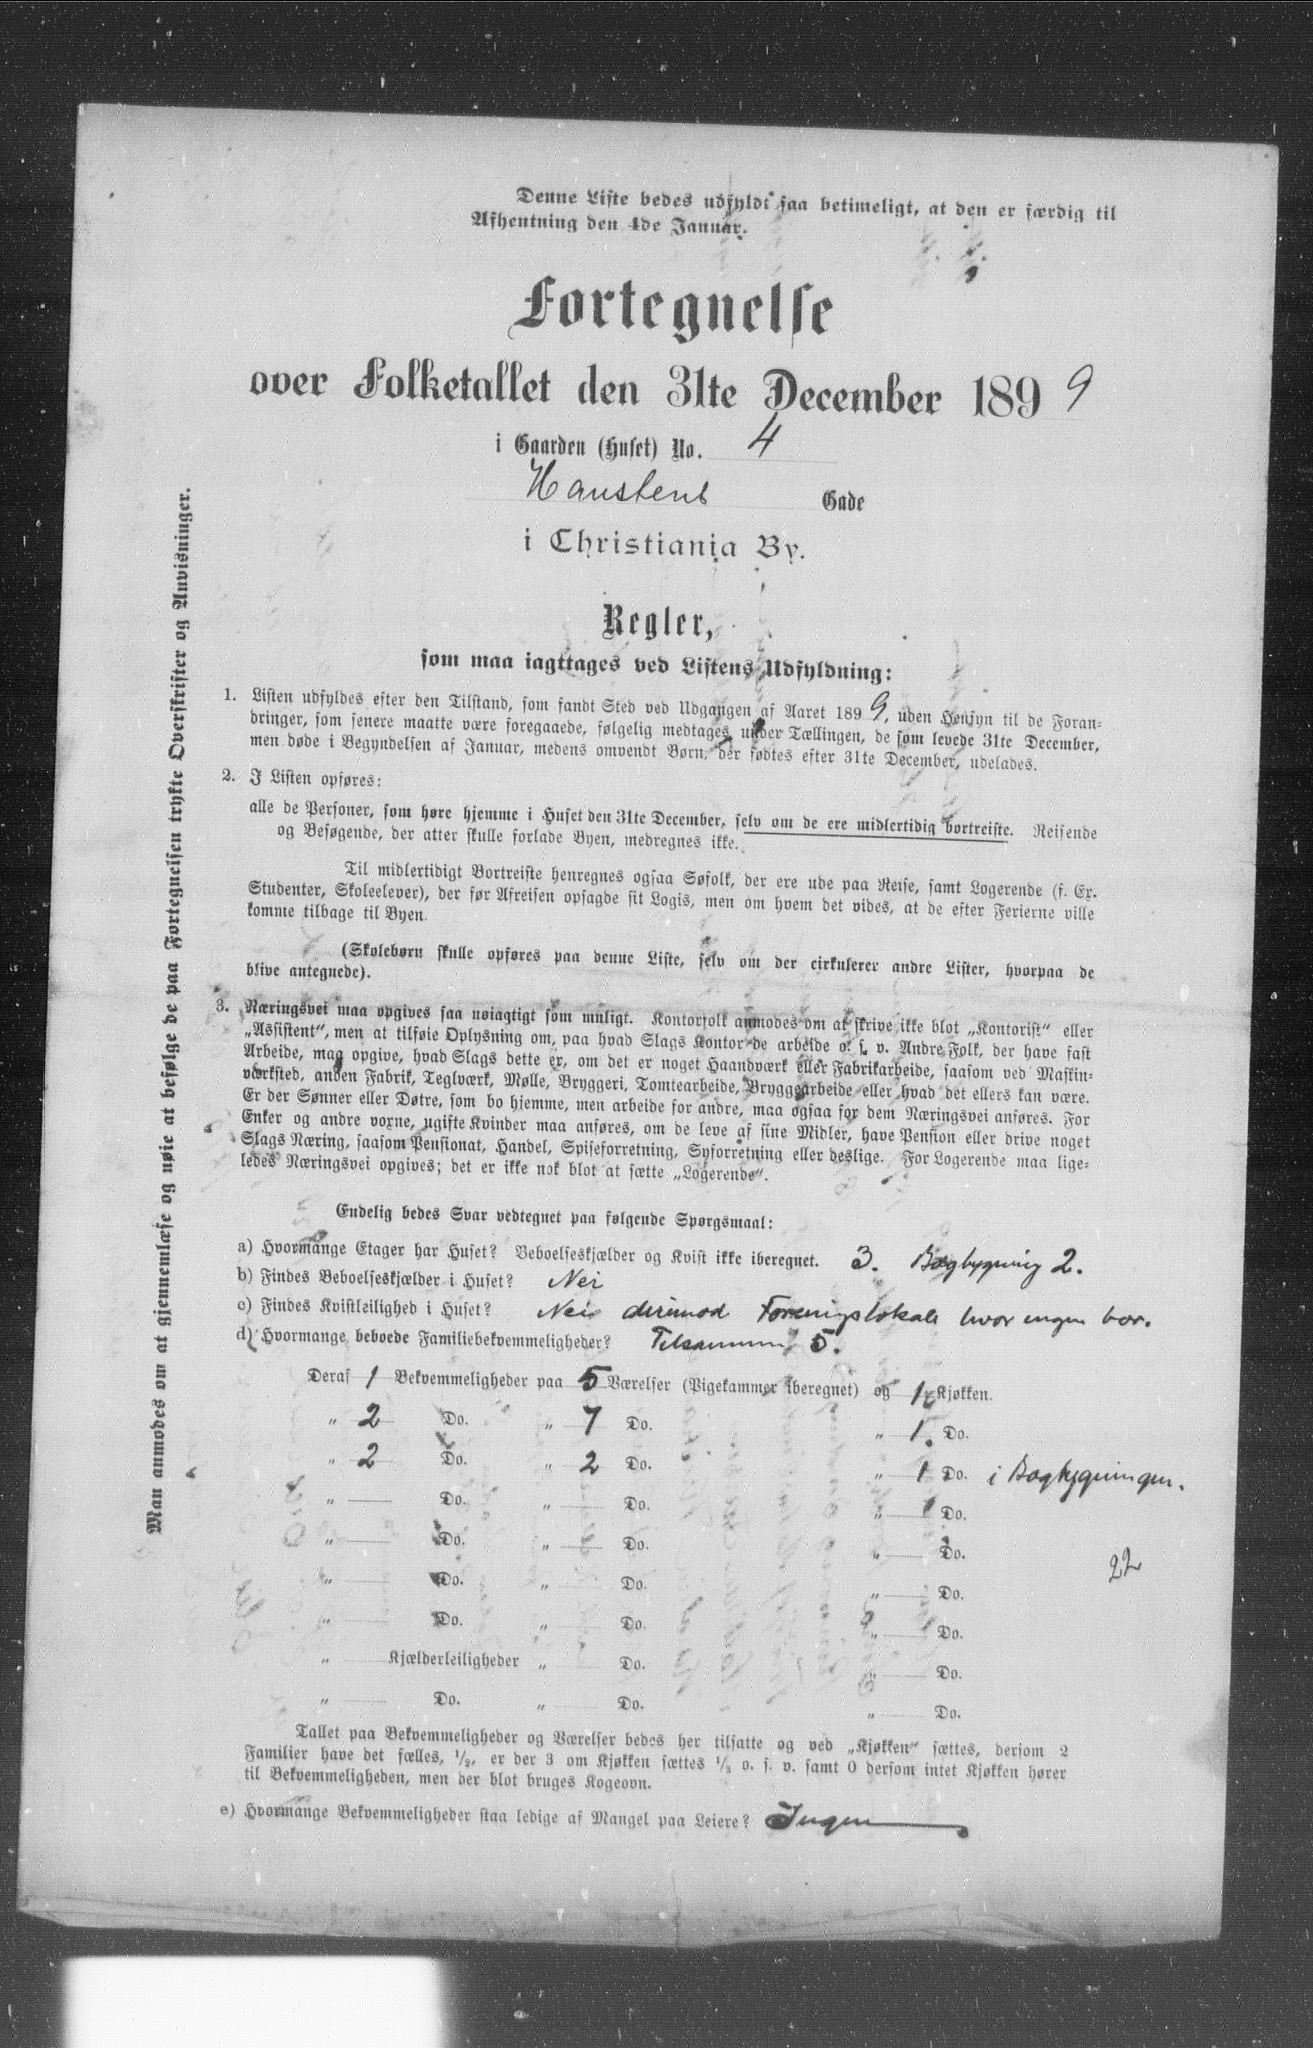 Denne Liste bedes udfyldt saa betimeligt, at den er færdig til
Afhentning den 4de Januar.
Fortegnelse
over Folketallet den 31te December 1899
i Gaarden (Huset) No. 4
Hanstens Gade
i Christiania By.
Regler,
som maa iagttages ved Listens Udfyldning:
1. Listen udfyldes efter den Tilstand, som fandt Sted ved Udgangen af Aaret 1899, uden Hensyn til de Foran-
dringer, som senere maatte være foregaaede, følgelig medtages under Tællingen, de som levede 31te December,
men døde i Begyndelsen af Januar, medens omvendt Børn, der fødtes efter 31te December, udelades.
2. I Listen opføres:
alle de Personer, som høre hjemme i Huset den 31te December, selv om de ere midlertidig bortreiste. Reisende
og Besøgende, der atter skulle forlade Byen, medregnes ikke.
Til midlertidigt Bortreiste henregnes ogsaa Søfolk, der ere ude paa Reise, samt Logerende (f. Ex.
Studenter, Skoleelever), der før Afreisen opsagde sit Logis, men om hvem det vides, at de efter Ferierne ville
komme tilbage til Byen.
(Skolebørn skulle opføres paa denne Liste, selv om der cirkulerer andre Lister, hvorpaa de
blive antegnede).
3. Næringsvei maa opgives saa nøiagtigt som muligt. Kontorfolk anmodes om at skrive ikke blot „Kontorist“ eller
„Assistent“, men at tilføie Oplysning om, paa hvad Slags Kontor de arbeide o. s. v. Andre Folk, der have fast
Arbeide, maa opgive, hvad Slags dette er, om det er noget Haandværk eller Fabrikarbeide, saasom ved Maskin-
værksted, anden Fabrik, Teglværk, Mølle, Bryggeri, Tomtearbeide, Bryggearbeide eller hvad det ellers kan være.
Er der Sønner eller Døtre, som bo hjemme, men arbeide for andre, maa ogsaa for dem Næringsvei anføres. For
Enker og andre voxne, ugifte Kvinder maa anføres, om de leve af sine Midler, have Pension eller drive noget
Slags Næring, saasom Pensionat, Handel, Spiseforretning, Syforretning eller deslige. For Logerende maa lige-
ledes Næringsvei opgives; det er ikke nok blot at sætte „Logerende“.
Endelig bedes Svar vedtegnet paa følgende Spørgsmaal:
a) Hvormange Etager har Huset? Beboelseskjælder og Kvist ikke iberegnet. 3. Bagbygning 2.
b) Findes Beboelseskjælder i Huset? Nei
c) Findes Kvistleilighed i Huset? Nei derimod Foreningslokale hvor ingen bor.
d) Hvormange beboede Familiebekvemmeligheder? Tilsammen 5.
Deraf 1 Bekvemmeligheder paa 5 Værelser (Pigekammer iberegnet) og 1 Kjøkken.
„ 2 Do. „ 7 Do. „ 1. Do.
„ 2 Do. „ 2 Do. „ 1 Do. i Bagbygningen.
„ Do. „ Do. „ Do.
„ Do. „ Do. „ Do.
22
„ Do. „ Do. „ Do.
„ Do. „ Do. „ Do.
„ Kjælderleiligheder „ Do. „ Do.
„ Do. „ Do. „ Do.
Tallet paa Bekvemmeligheder og Værelser bedes her tilsatte og ved „Kjøkken“ sættes, dersom 2
Familier have det fælles, 1/2, er der 3 om Kjøkken sættes 1/3 o. s. v. samt 0 dersom intet Kjøkken hører
til Bekvemmeligheden, men der blot bruges Kogeovn.
e) Hvormange Bekvemmeligheder staa ledige af Mangel paa Leiere? Ingen
Man anmodes om at gjennemlæse og nøie at befølge de paa Fortegnelsen trykte Overskrifter og Anvisninger.